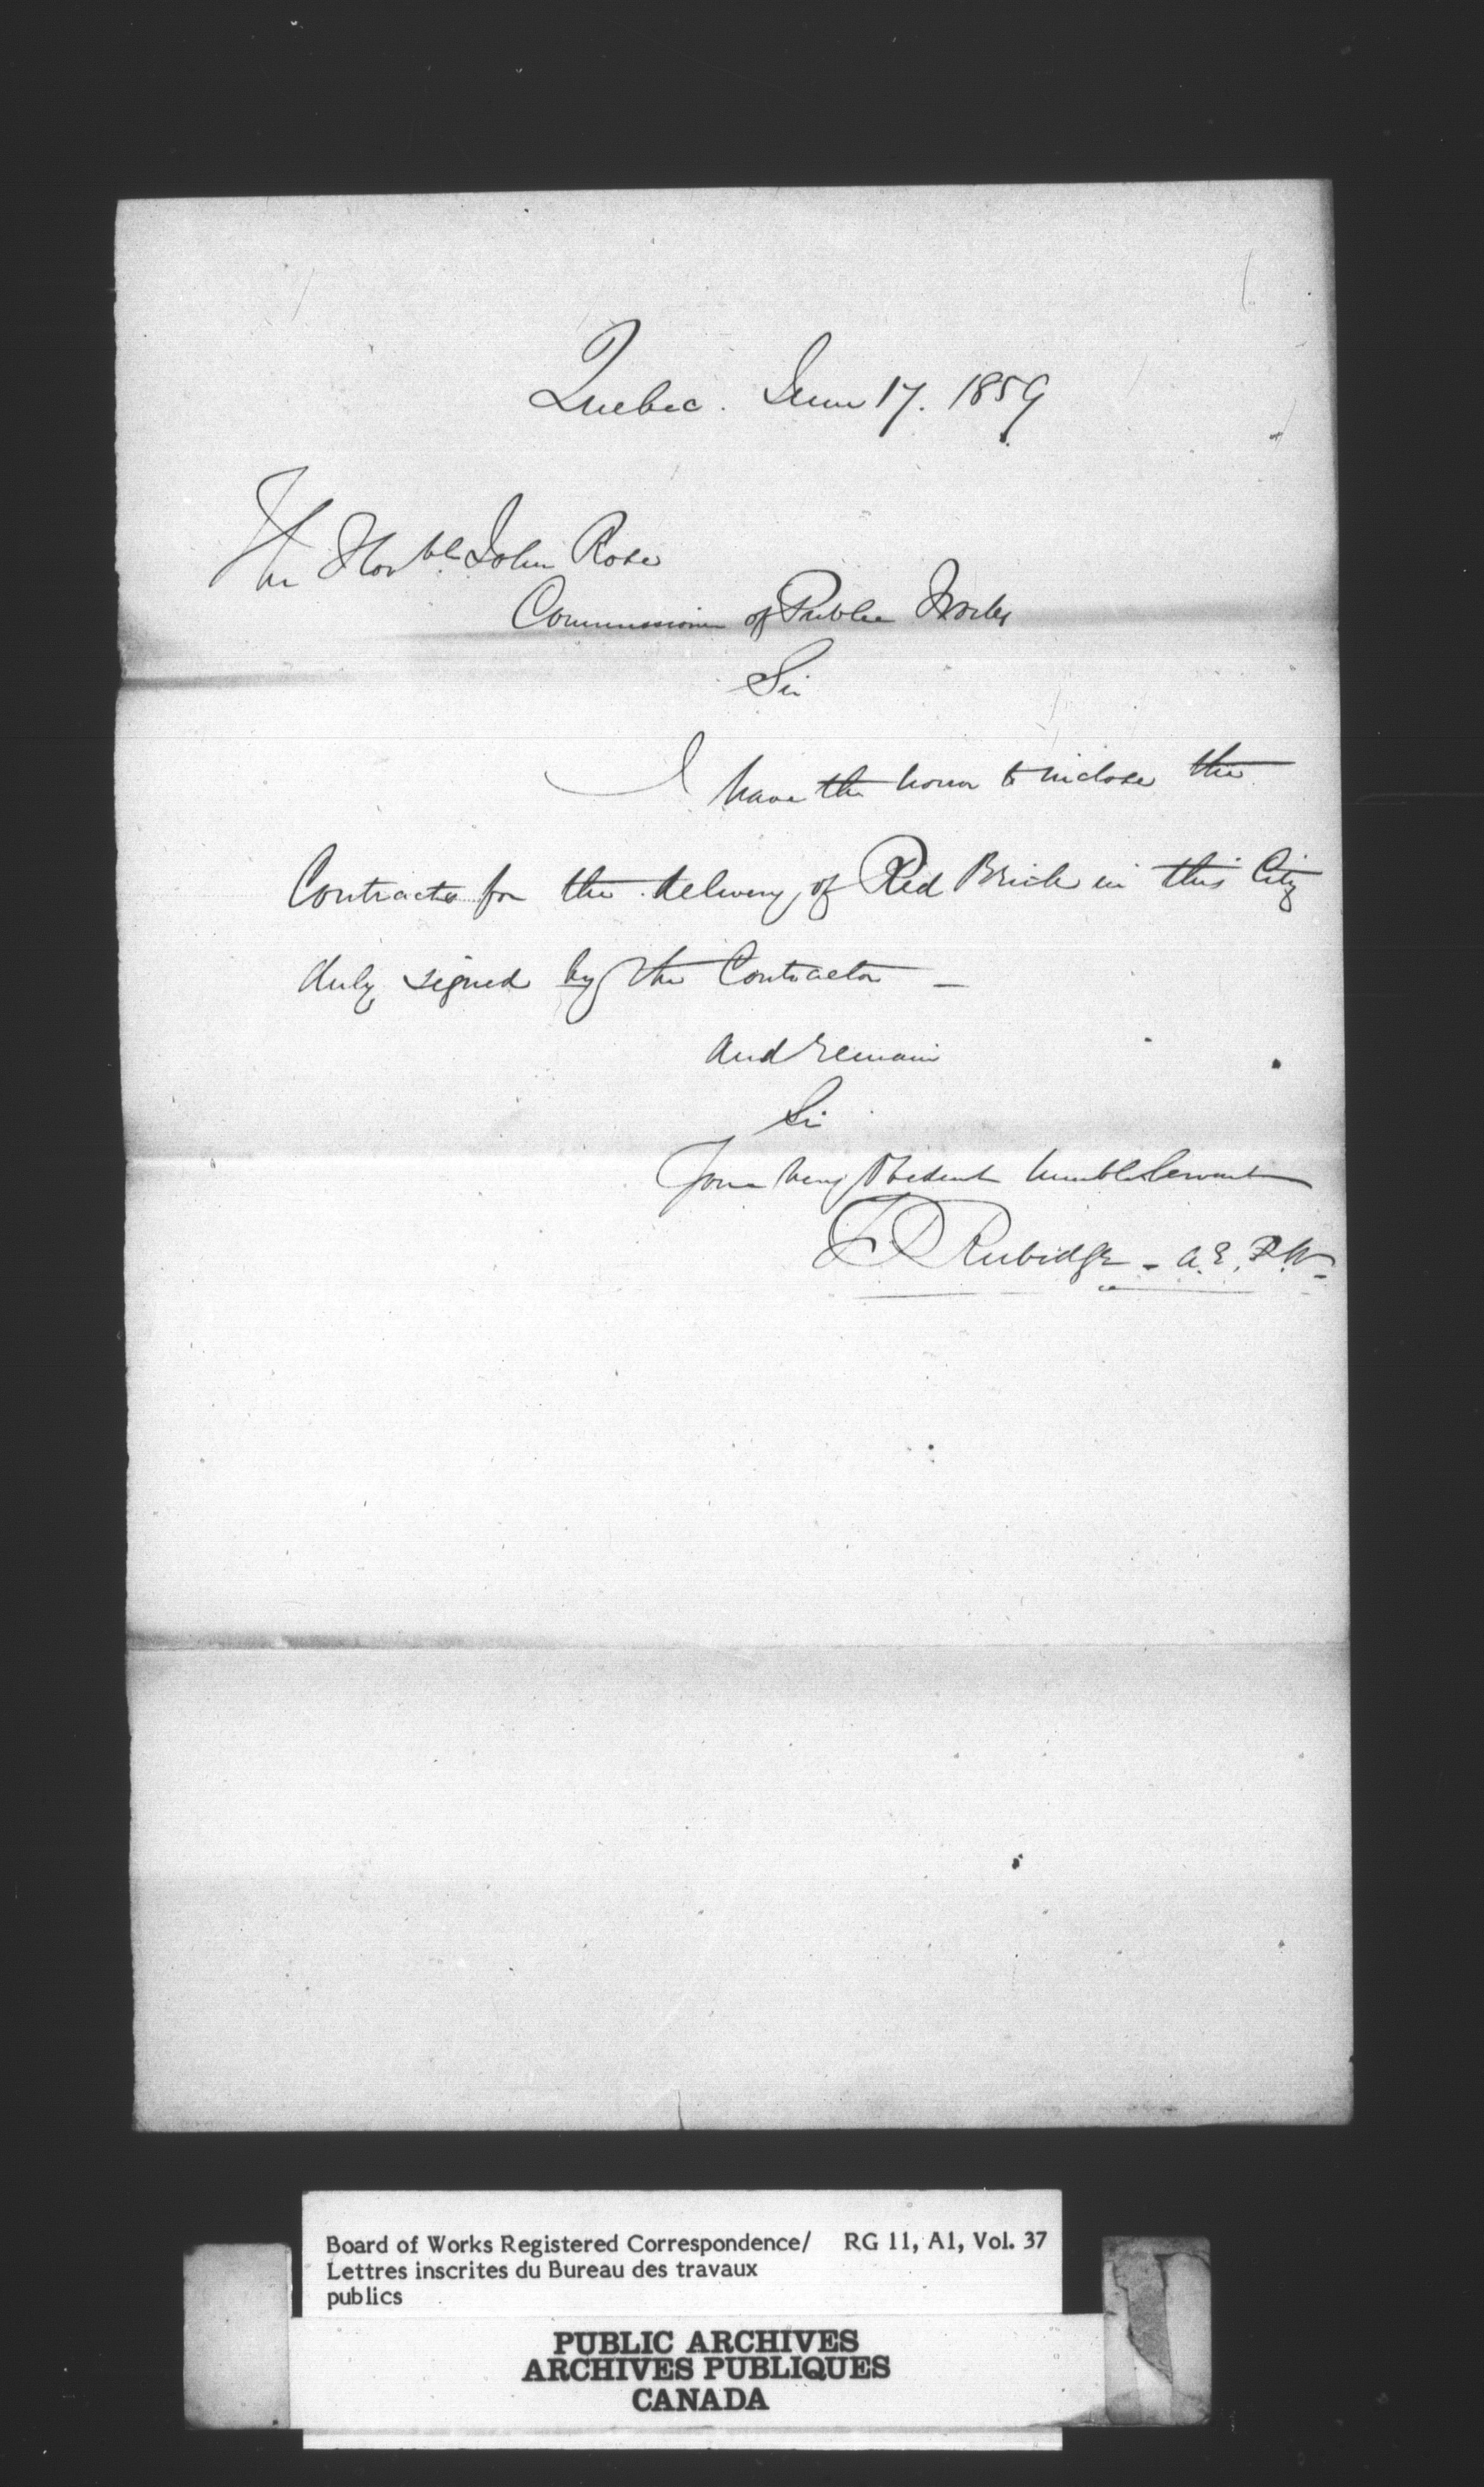 Quebec. June 17. 1859
The Honble John Rose
Commissioner of Public Works
Sir
I have the honor to inclose the
Contracts for the delivery of Red Brick in this City
duly signed by the Contractor —
and remain
Sir
Your very Obedient humble Servant
F. P. Rubidge - A. E. P. W.
Board of Works Registered Correspondence/ RG 11, A1, Vol. 37
Lettres inscrites du Bureau des travaux
publics
PUBLIC ARCHIVES
ARCHIVES PUBLIQUES
CANADA